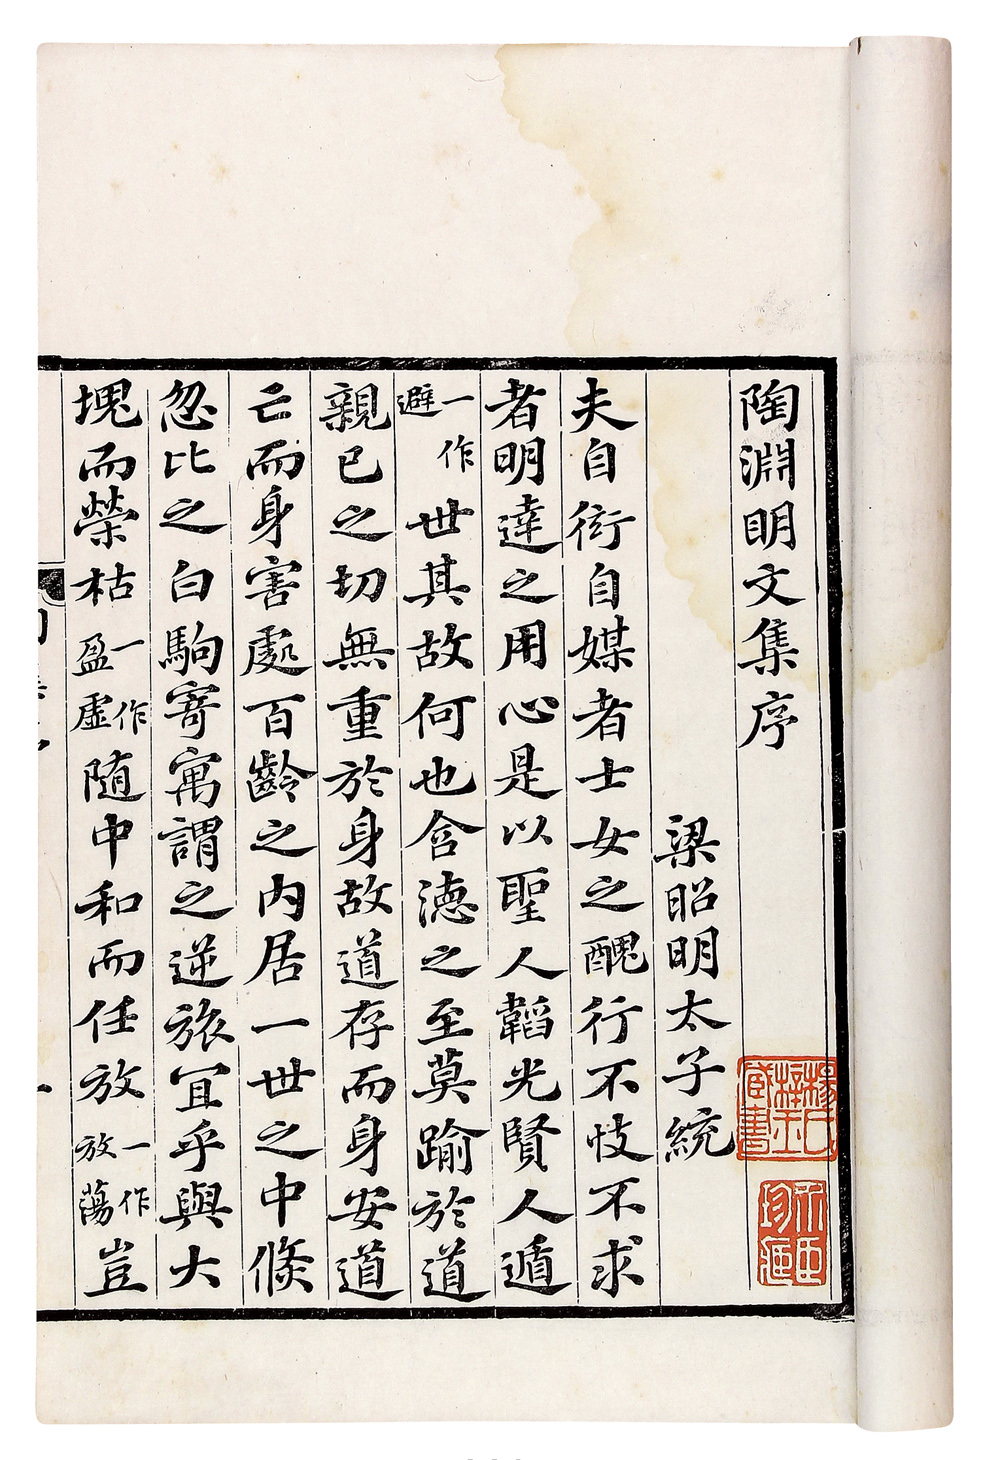 陶淵明文集序
梁昭明太子統
夫自衒自媒者士女之醜行不忮不求
者明達之用心是以聖人韜光賢人遁
一作避世其故何也含德之至莫踰於道
親己之切無重於身故道存而身安道
亡而身害處百齡之内居一世之中倏
忽比之白駒寄寓謂之逆旅宜乎與大
塊而榮枯一作盈虛隨中和而任放一作放蕩豈
楊氏
藏書